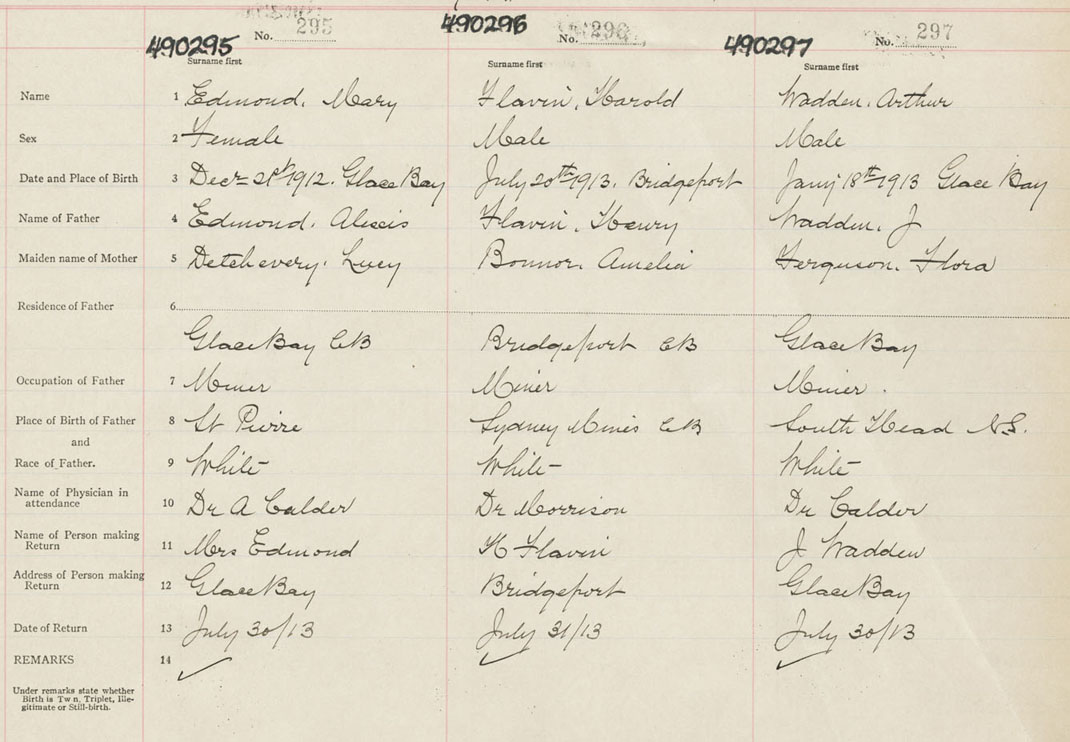 490295 No. 295 490296 No. 296 490297 No. 297
Surname first Surname first Surname first
Name 1 Edmond, Mary Flavin, Harold Wadden, Arthur
Sex 2 Female Male Male
Date and Place of Birth 3 Decr 21st 1912. Glace Bay July 20th 1913. Bridgeport Jany 18th 1913 Glace Bay
Name of Father 4 Edmond, Alexis Flavin, Henry Wadden, J
Maiden name of Mother 5 Detchevery, Lucy Bonnor, Amelia Ferguson, Flora
Residence of Father 6
Glace Bay CB Bridgeport CB Glace Bay
Occupation of Father 7 Miner Miner Miner.
Place of Birth of Father 8 St Pierre Sydney Mines CB South Head N.S.
and
Race of Father. 9 White White White
Name of Physician in
attendance 10 Dr A Calder Dr Morrison Dr Calder
Name of Person making
Return 11 Mrs Edmond H Flavin J Wadden
Address of Person making
Return 12 Glace Bay Bridgeport Glace Bay
Date of Return 13 July 30/13 July 31/13 July 30/13
REMARKS 14 ✓ ✓ ✓
Under remarks state whether
Birth is Twn, Triplet, Ille-
gitimate or Still-birth.